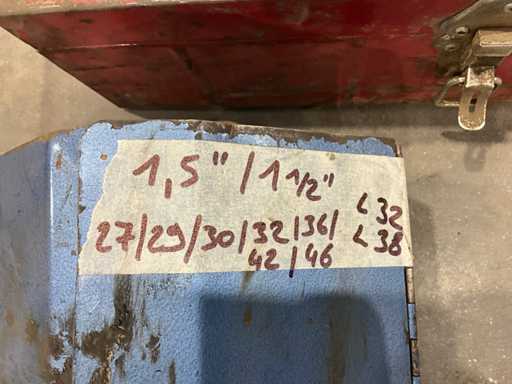 1,5"/1 1/2"
27/29/30/32/36/
42/46
< 32
< 38